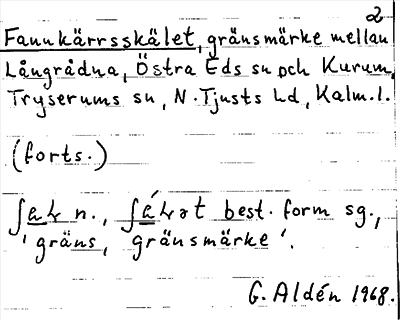 2
Fannkärrsskälet, gränsmärke mellan
Långrådna, Östra Eds sn och Kurum,
Tryserums sn, N. Tjusts hd, Kalm. l.
(forts.)
n., best. form sg.,
'gräns, gränsmärke'.
G. Aldén 1968.